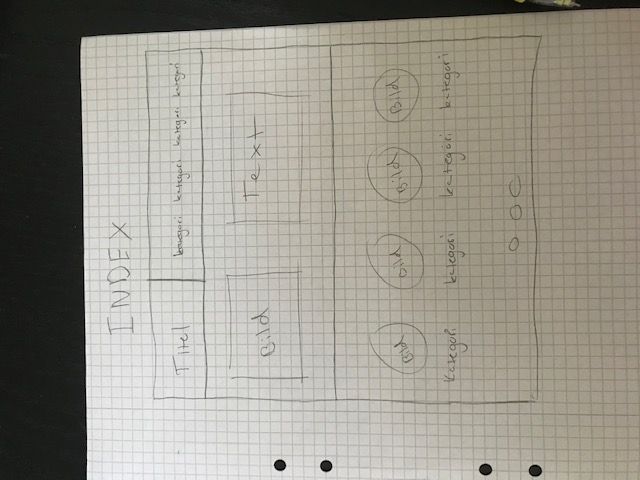 INDEX
Titel kategori kategori kategori kategori
Bild Text
Bild Bild Bild Bild
Kategori kategori kategori kategori